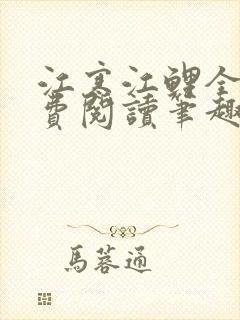 江寒江鯉全
費閱讀筆趣
馬蓉通